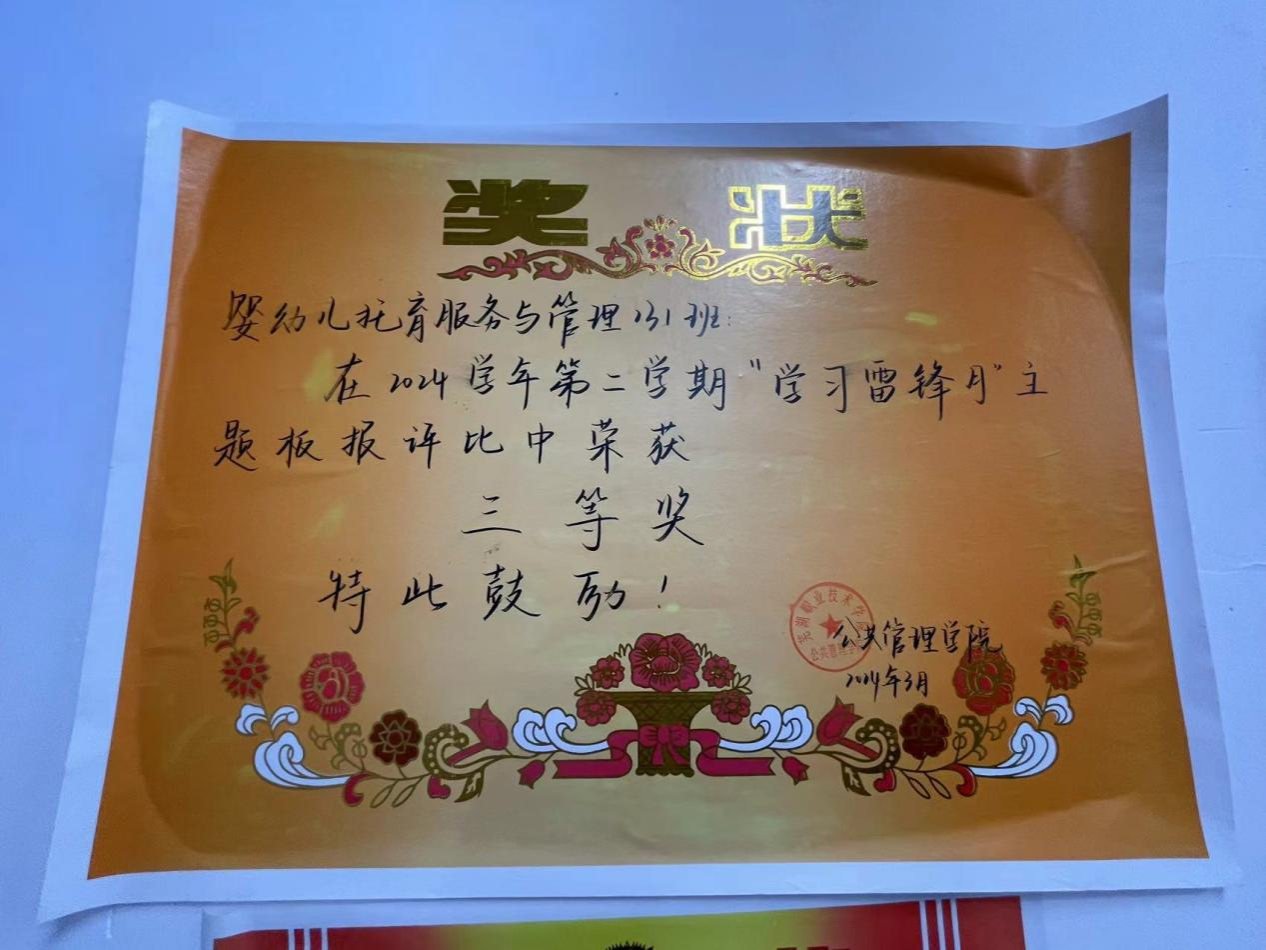 奖状
婴幼儿托育服务与管理131班:
在2024学年第二学期“学习雷锋月”主
题板报评比中荣获
三等奖
特此鼓励!
芜湖职业技术学院
公共管理学院
公共管理学院
2024年3月